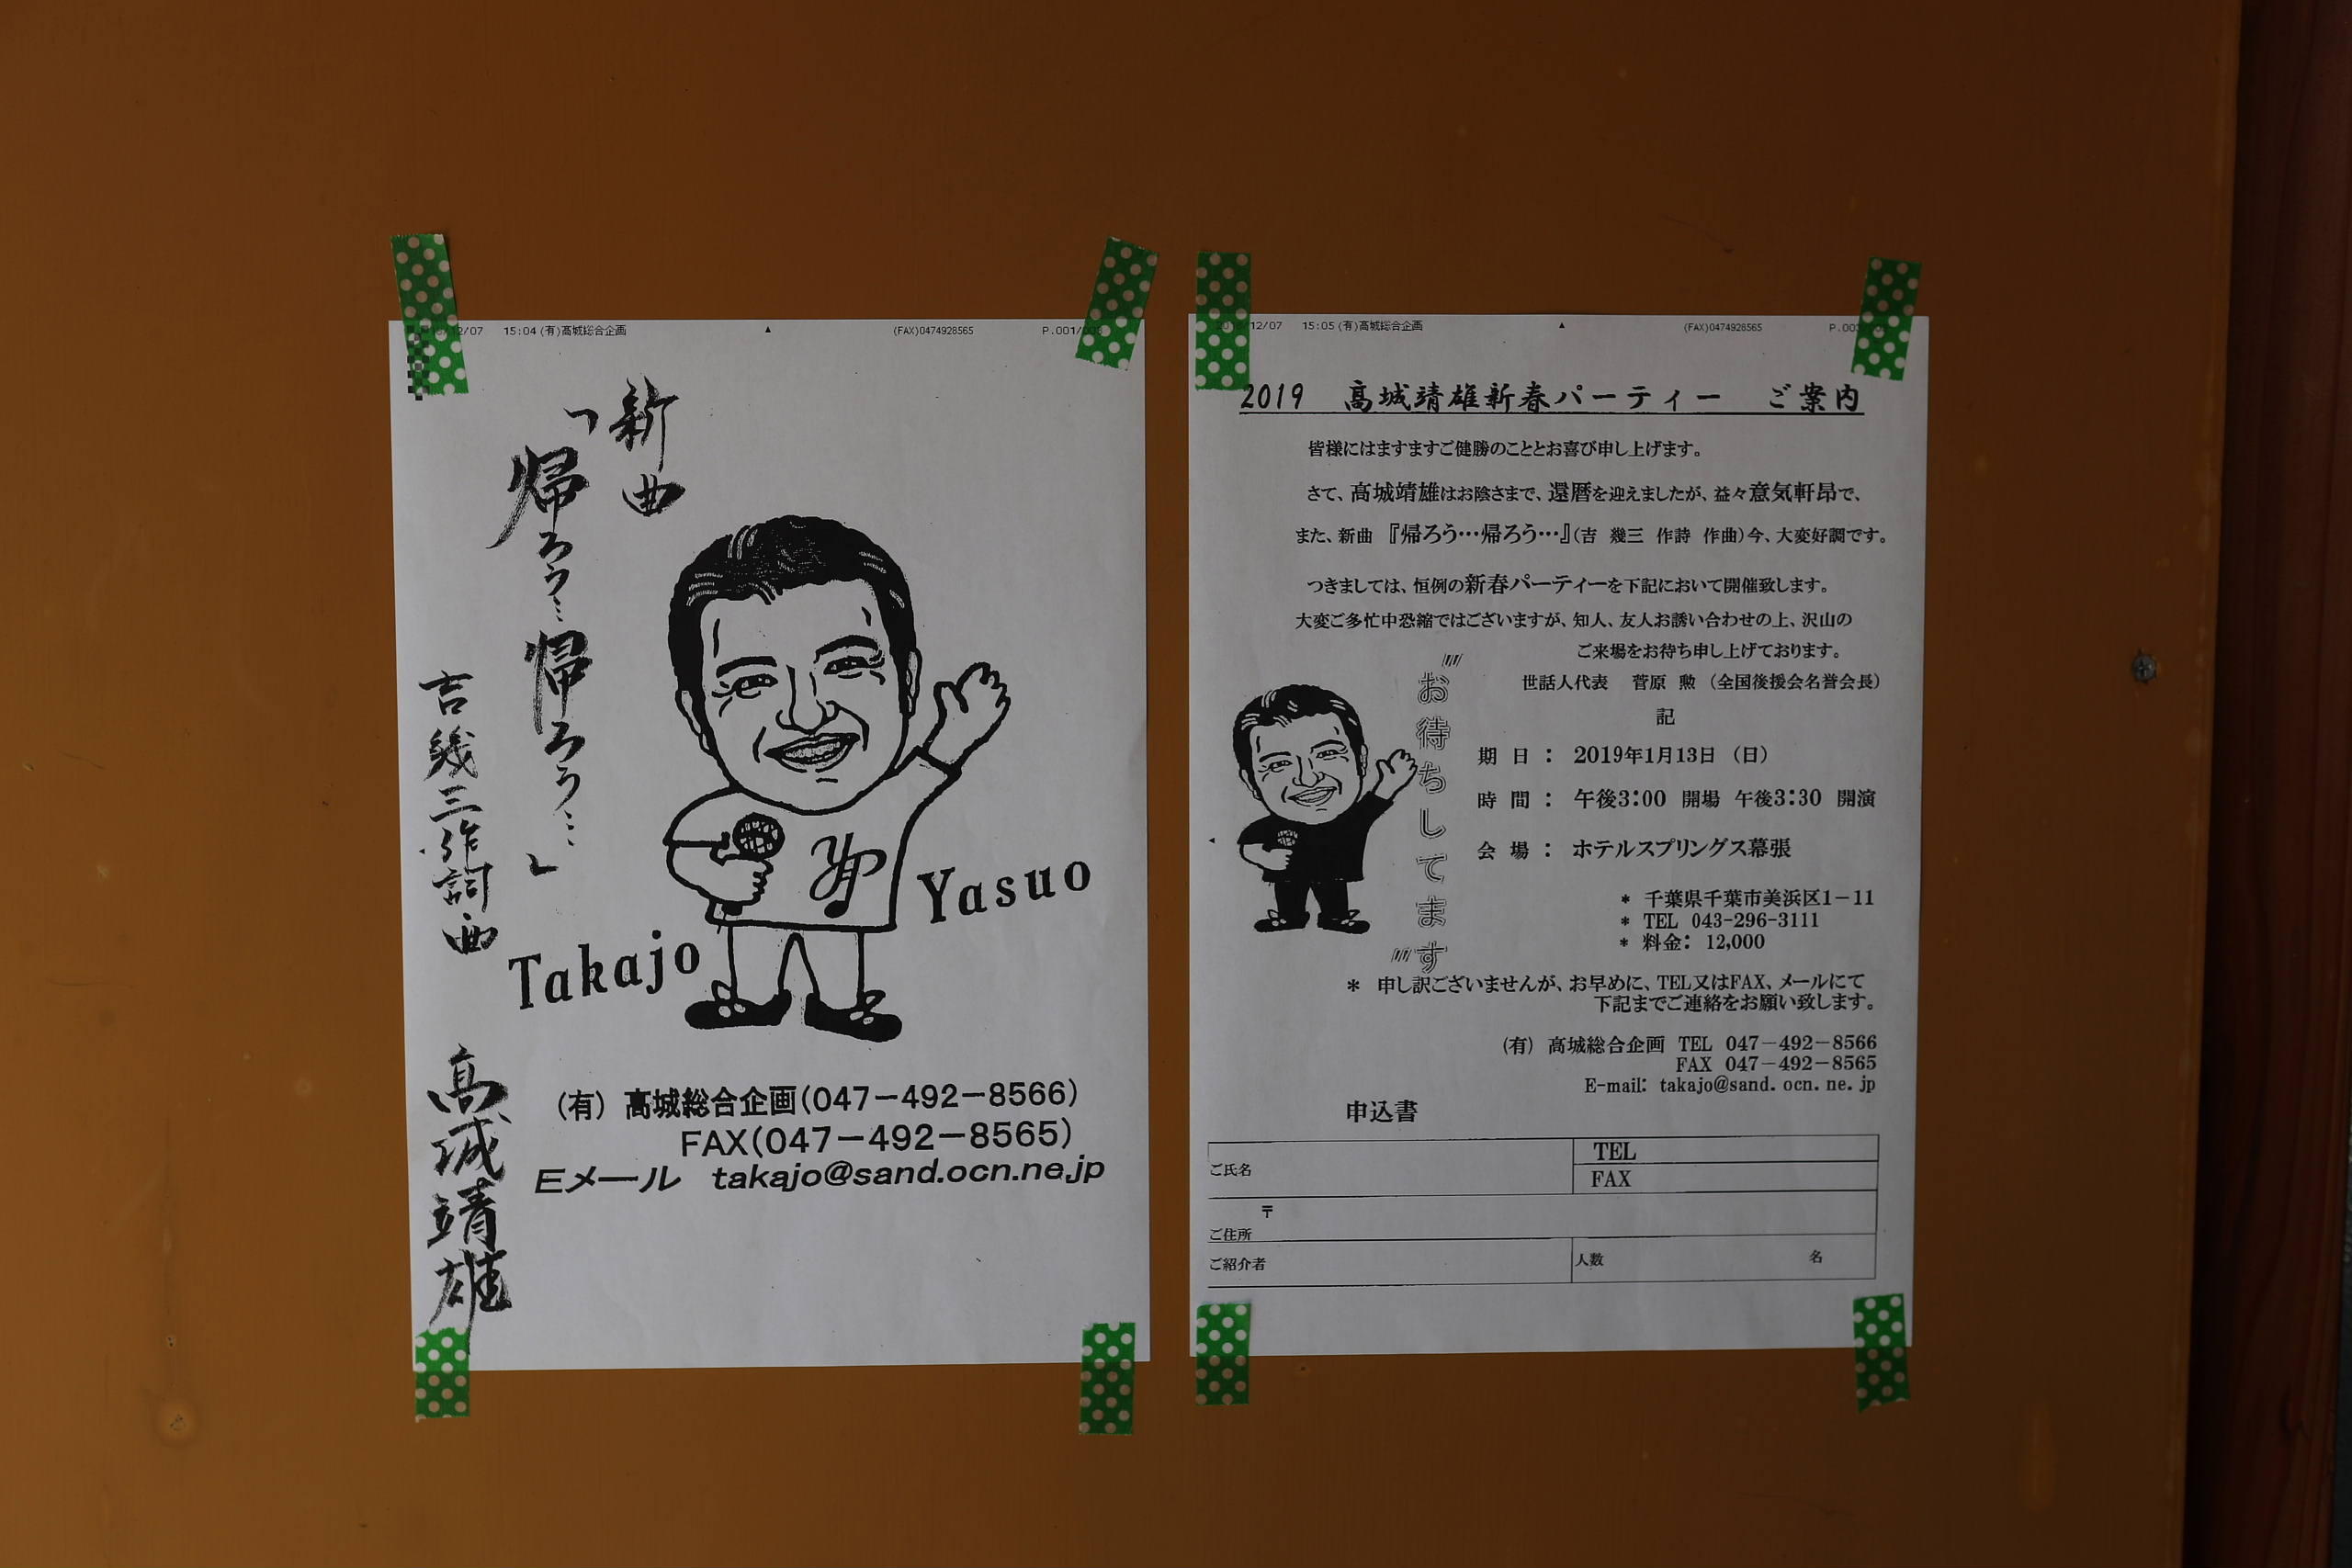 12/07 15:04 (有)高城総合企画 (FAX)0474928565 P.001/
新曲
「帰ろう…帰ろう…」
吉幾三作詞曲
高城靖雄
Takajo Yasuo
(有) 高城総合企画(047-492-8566)
FAX(047-492-8565)
Eメール takajo@sand.ocn.ne.jp
12/07 15:05 (有)高城総合企画 (FAX)0474928565 P.00
2019 高城靖雄新春パーティー ご案内
皆様にはますますご健勝のこととお喜び申し上げます。
さて、高城靖雄はお陰さまで、還暦を迎えましたが、益々意気軒昂で、
また、新曲 『帰ろう…帰ろう…』(吉 幾三 作詩 作曲)今、大変好調です。
つきましては、恒例の新春パーティーを下記において開催致します。
大変ご多忙中恐縮ではございますが、知人、友人お誘い合わせの上、沢山の
ご来場をお待ち申し上げております。
世話人代表 菅原 勲 (全国後援会名誉会長)
記
"お待ちしてます"
期 日 : 2019年1月13日 (日)
時 間 : 午後3:00 開場 午後3:30 開演
会 場 : ホテルスプリングス幕張
* 千葉県千葉市美浜区1-11
* TEL 043-296-3111
* 料金: 12,000
* 申し訳ございませんが、お早めに、TEL又はFAX、メールにて
下記までご連絡をお願い致します。
(有) 高城総合企画 TEL 047-492-8566
FAX 047-492-8565
E-mail: takajo@sand.ocn.ne.jp
申込書
ご氏名 TEL
FAX
〒
ご住所
ご紹介者 人数 名